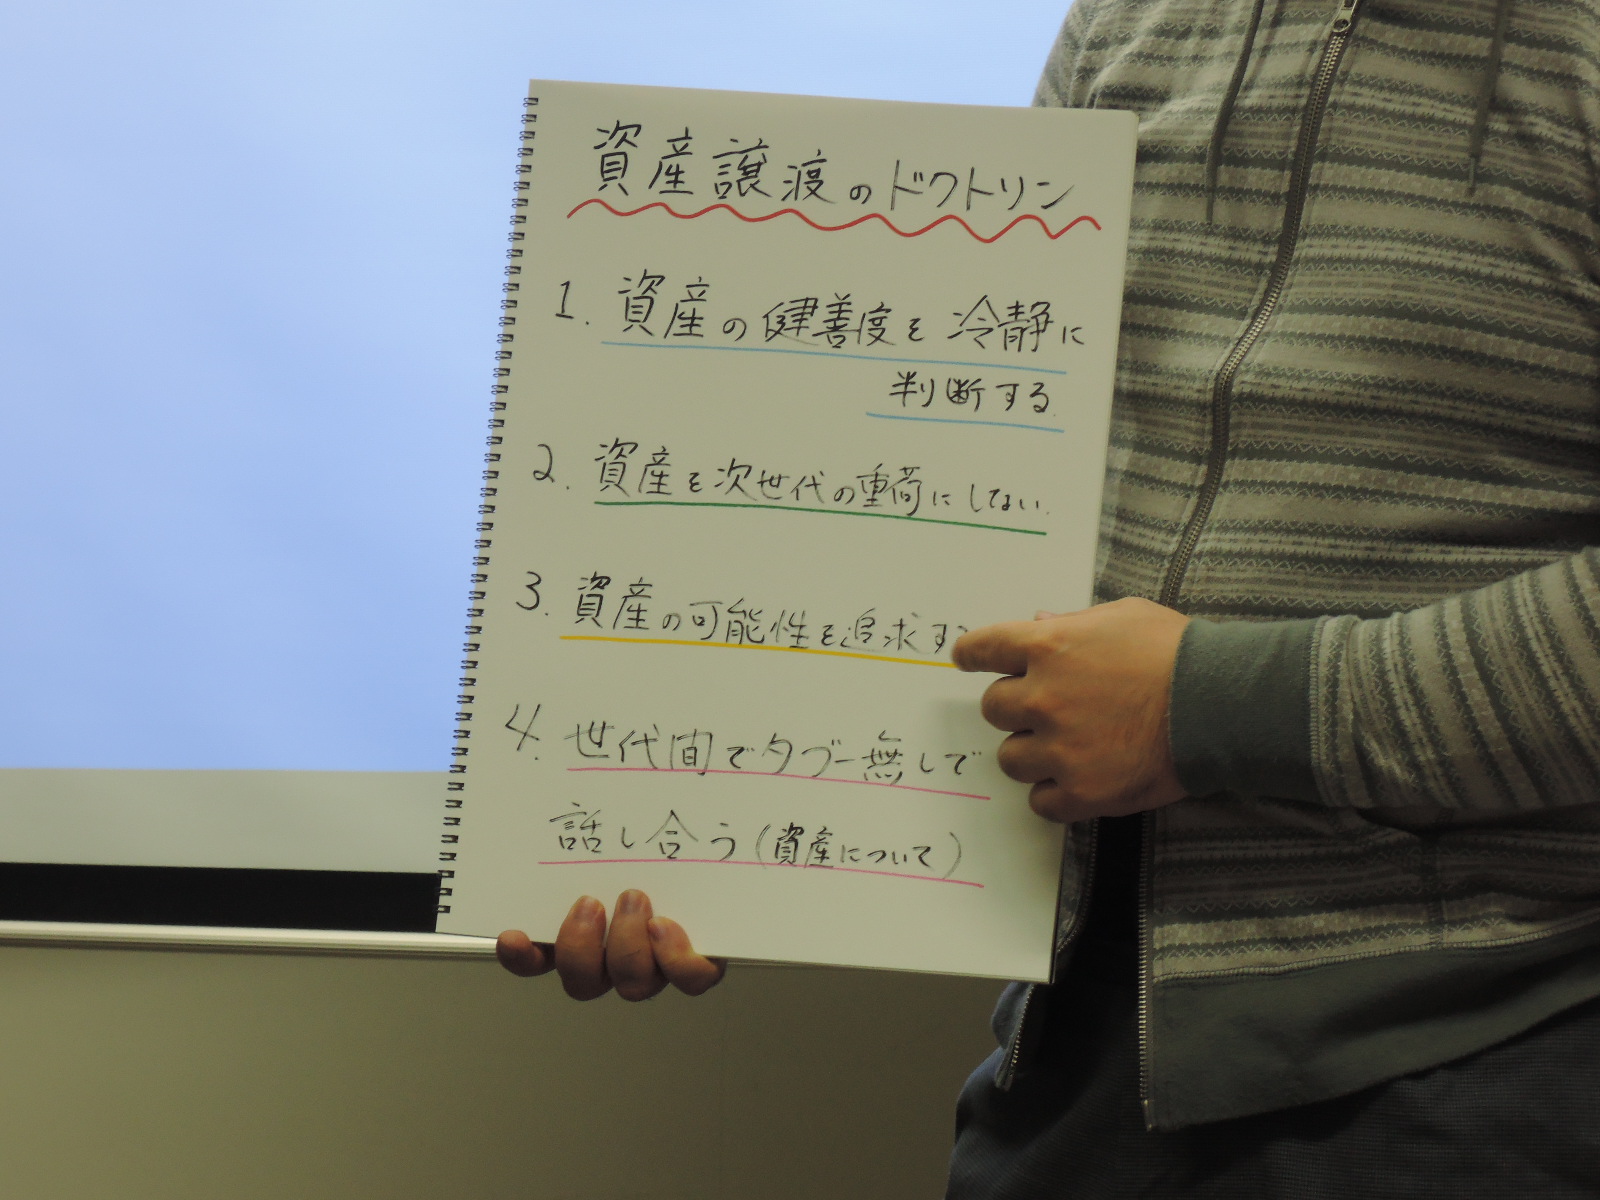 資産譲渡のドクトリン
1. 資産の健善度を冷静に
判断する.
2. 資産を次世代の重荷にしてない.
3. 資産の可能性を追求す
4. 世代間でタブー無しで
話し合う(資産について)